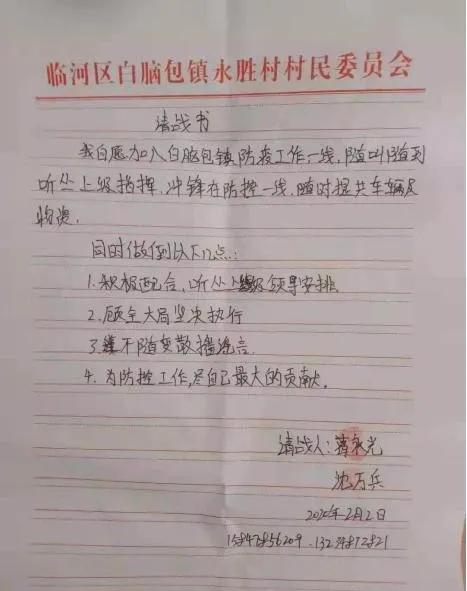 临河区白脑包镇永胜村村民委员会
请战书
我自愿加入白脑包镇防疫工作一线,随叫随到
听从上级指挥,冲锋在防控一线,随时提共车辆及
物资.
同时做倒以下几点:
1.积极配合,听从上级领导安排
2.顾全大局坚决执行
3.不随变散播谣言
4.为防控工作,尽自己最大的贡献.
请战人:蒋永光
沈万兵
2020年2月2日